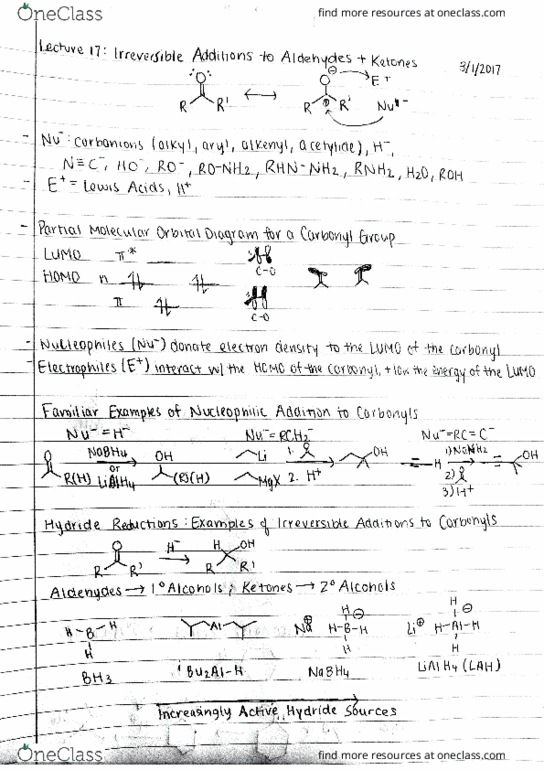 OneClass
find more resources at oneclass.com
Lecture 17: Irreversible Additions to Aldehydes + Ketones
3/1/2017
O O⊖ E+
R R' ↔ R R' Nu-
- Nu-: carbanions (alkyl, aryl, alkenyl, acetylide), H-,
N≡C-, HO-, RO-, RO-NH2, RHN-NH2, RNH2, H2O, ROH
- E+ = Lewis Acids, H+
- Partial Molecular Orbital Diagram for a Carbonyl Group
LUMO π*
C-O
HOMO n
π
C-O
- Nucleophiles (Nu-) donate electron density to the LUMO of the carbonyl
- Electrophiles (E+) interact w/ the HOMO of the carbonyl, + low the energy of the LUMO
Familiar Examples of Nucleophilic Addition to Carbonyls
Nu- = H- Nu- = RCH2- Nu- = RC≡C-
O NaBH4 OH Li 1. OH H 1) NaNH2 OH
R(H) or LiAlH4 (R)(H) MgX 2. H+ 2) 3) H+
Hydride Reductions: Examples of Irreversible Additions to Carbonyls
O H- H OH
R R' → R R'
Aldehydes → 1° Alcohols; Ketones → 2° Alcohols
H-B-H Al Na⊕ H-B-H ⊖ Li⊕ H-Al-H ⊖
H H H H H H
BH3 iBu2Al-H NaBH4 LiAlH4 (LAH)
Increasingly Active Hydride Sources
OneClass
find more resources at oneclass.com